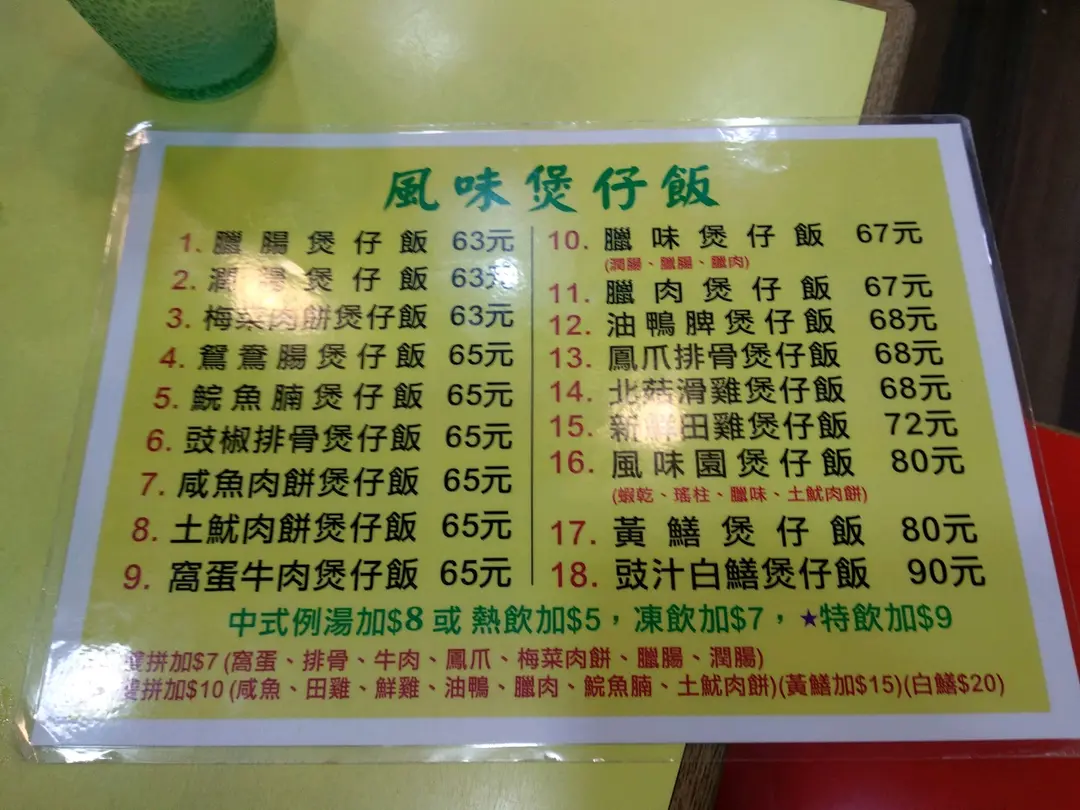 風味煲仔飯
1. 臘腸煲仔飯 63元
2. 潤腸煲仔飯 63元
3. 梅菜肉餅煲仔飯 63元
4. 鴛鴦腸煲仔飯 65元
5. 鯇魚腩煲仔飯 65元
6. 豉椒排骨煲仔飯 65元
7. 咸魚肉餅煲仔飯 65元
8. 土魷肉餅煲仔飯 65元
9. 窩蛋牛肉煲仔飯 65元
10. 臘味煲仔飯 67元
(潤腸、臘腸、臘肉)
11. 臘肉煲仔飯 67元
12. 油鴨脾煲仔飯 68元
13. 鳳爪排骨煲仔飯 68元
14. 北菇滑雞煲仔飯 68元
15. 新鮮田雞煲仔飯 72元
16. 風味園煲仔飯 80元
(蝦乾、瑤柱、臘味、土魷肉餅)
17. 黃鱔煲仔飯 80元
18. 豉汁白鱔煲仔飯 90元
中式例湯加$8 或 熱飲加$5，凍飲加$7，★特飲加$9
雙拼加$7 (窩蛋、排骨、牛肉、鳳爪、梅菜肉餅、臘腸、潤腸)
雙拼加$10 (咸魚、田雞、鮮雞、油鴨、臘肉、鯇魚腩、土魷肉餅)(黃鱔加$15)(白鱔$20)